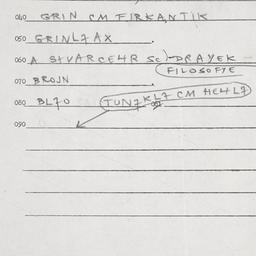 040 GRIN CM FIRKANTIK
050 GRINL7AX
060 A StVARCEHR SC)-DRAYEK
FILOSOFYE
070 BROJN
080 BL70 TUN7KL7 CM HEHL7
090